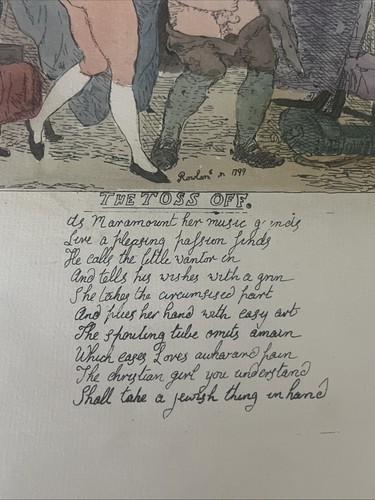 Rowlan^d^n 1799
THE TOSS OFF.
As Maramount her music grinds
Live a pleasing passion finds
He calls the little wanton in
And tells his wishes with a grin
She takes the circumsised part
And plies her hand with easy art
The spouting tube omits amain
Which eases Loves aukward pain
The christian girl you understand
Shall take a jewish thing in hand